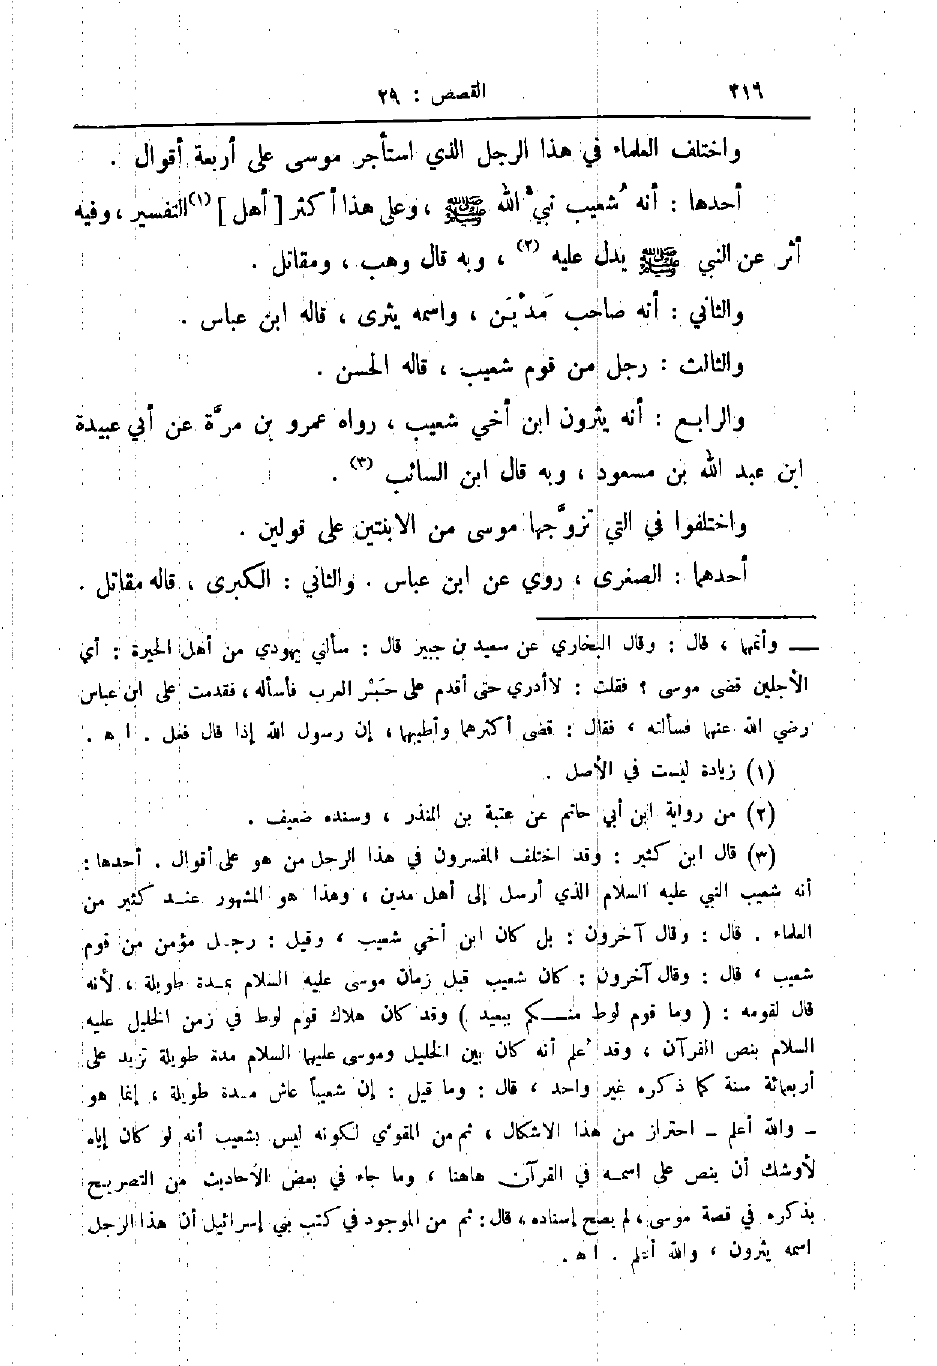 ٢١٦
القصص : ٢٩
واختلف العلماء في هذا الرجل الذي استأجر موسى على أربعة أقوال .
أحدها : أنه شُعيب نبيُّ الله ﷺ ، وعلى هذا أكثر [ أهل ] (١) التفسير ، وفيه
أثر عن النبي ﷺ يدل عليه (٢) ، وبه قال وهب ، ومقاتل .
والثاني : أنه صاحب مَدْيَن ، واسمه يثرى ، قاله ابن عباس .
والثالث : رجل من قوم شعيب ، قاله الحسن .
والرابع : أنه يثرون ابن أخي شعيب ، رواه عمرو بن مرَّة عن أبي عبيدة
ابن عبد الله بن مسعود ، وبه قال ابن السائب (٣) .
واختلفوا في التي تزوَّجها موسى من الابنتين على قولين .
أحدهما : الصغرى ، روي عن ابن عباس . والثاني : الكبرى ، قاله مقاتل .
ــ وأتمها ، قال : وقال البخاري عن سعيد بن جبير قال : سألني يهودي من أهل الحيرة : أي
الأجلين قضى موسى ؟ فقلت : لا أدري حتى أقدم على حَبْر العرب فأسأله ، فقدمت على ابن عباس
رضي الله عنهما فسألته ، فقال : قضى أكثرهما وأطيبهما ، إن رسول الله إذا قال فعل . ا هـ .
(١) زيادة ليست في الأصل .
(٢) من رواية ابن أبي حاتم عن عتبة بن المنذر ، وسنده ضعيف .
(٣) قال ابن كثير : وقد اختلف المفسرون في هذا الرجل من هو على أقوال . أحدها :
أنه شعيب النبي عليه السلام الذي أرسل إلى أهل مدين ، وهذا هو المشهور عند كثير من
العلماء . قال : وقال آخرون : بل كان ابن أخي شعيب ، وقيل : رجل مؤمن من قوم
شعيب ، قال : وقال آخرون : كان شعيب قبل زمان موسى عليه السلام بمدة طويلة ، لأنه
قال لقومه : ( وما قوم لوط منكم ببعيد ) وقد كان هلاك قوم لوط في زمن الخليل عليه
السلام بنص القرآن ، وقد عُلم أنه كان بين الخليل وموسى عليهما السلام مدة طويلة تزيد على
أربعمائة سنة كما ذكره غير واحد ، قال : وما قيل : إن شعيباً عاش مدة طويلة ، إنما هو
ــ والله أعلم ــ احتراز من هذا الاشكال ، ثم من المقوِّي لكونه ليس بشعيب أنه لو كان إياه
لأوشك أن ينص على اسمه في القرآن هاهنا ، وما جاء في بعض الأحاديث من التصريح
بذكره في قصة موسى ، لم يصح إسناده ، قال : ثم من الموجود في كتب بني إسرائيل أن هذا الرجل
اسمه يثرون ، والله أعلم . ا هـ .